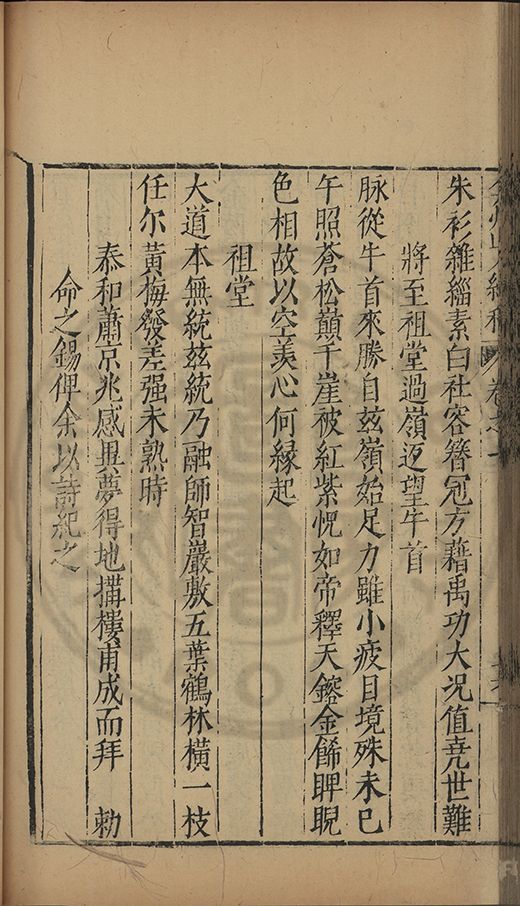 卷之一
朱衫雜緇素白社客簪冠方藉禹功大况值堯世難
將至祖堂過嶺返望牛首
脉從牛首來勝自兹嶺始足力雖小疲目境殊未已
午照蒼松巔千崖被紅紫怳如帝釋天鎔金餙睥睨
色相故以空羨心何緣起
祖堂
大道本無統兹統乃融師智巖敷五葉鶴林橫一枝
任尔黃梅發差强未熟時
泰和蕭京兆感異夢得地搆樓甫成而拜 勅
命之錫俾余以詩紀之